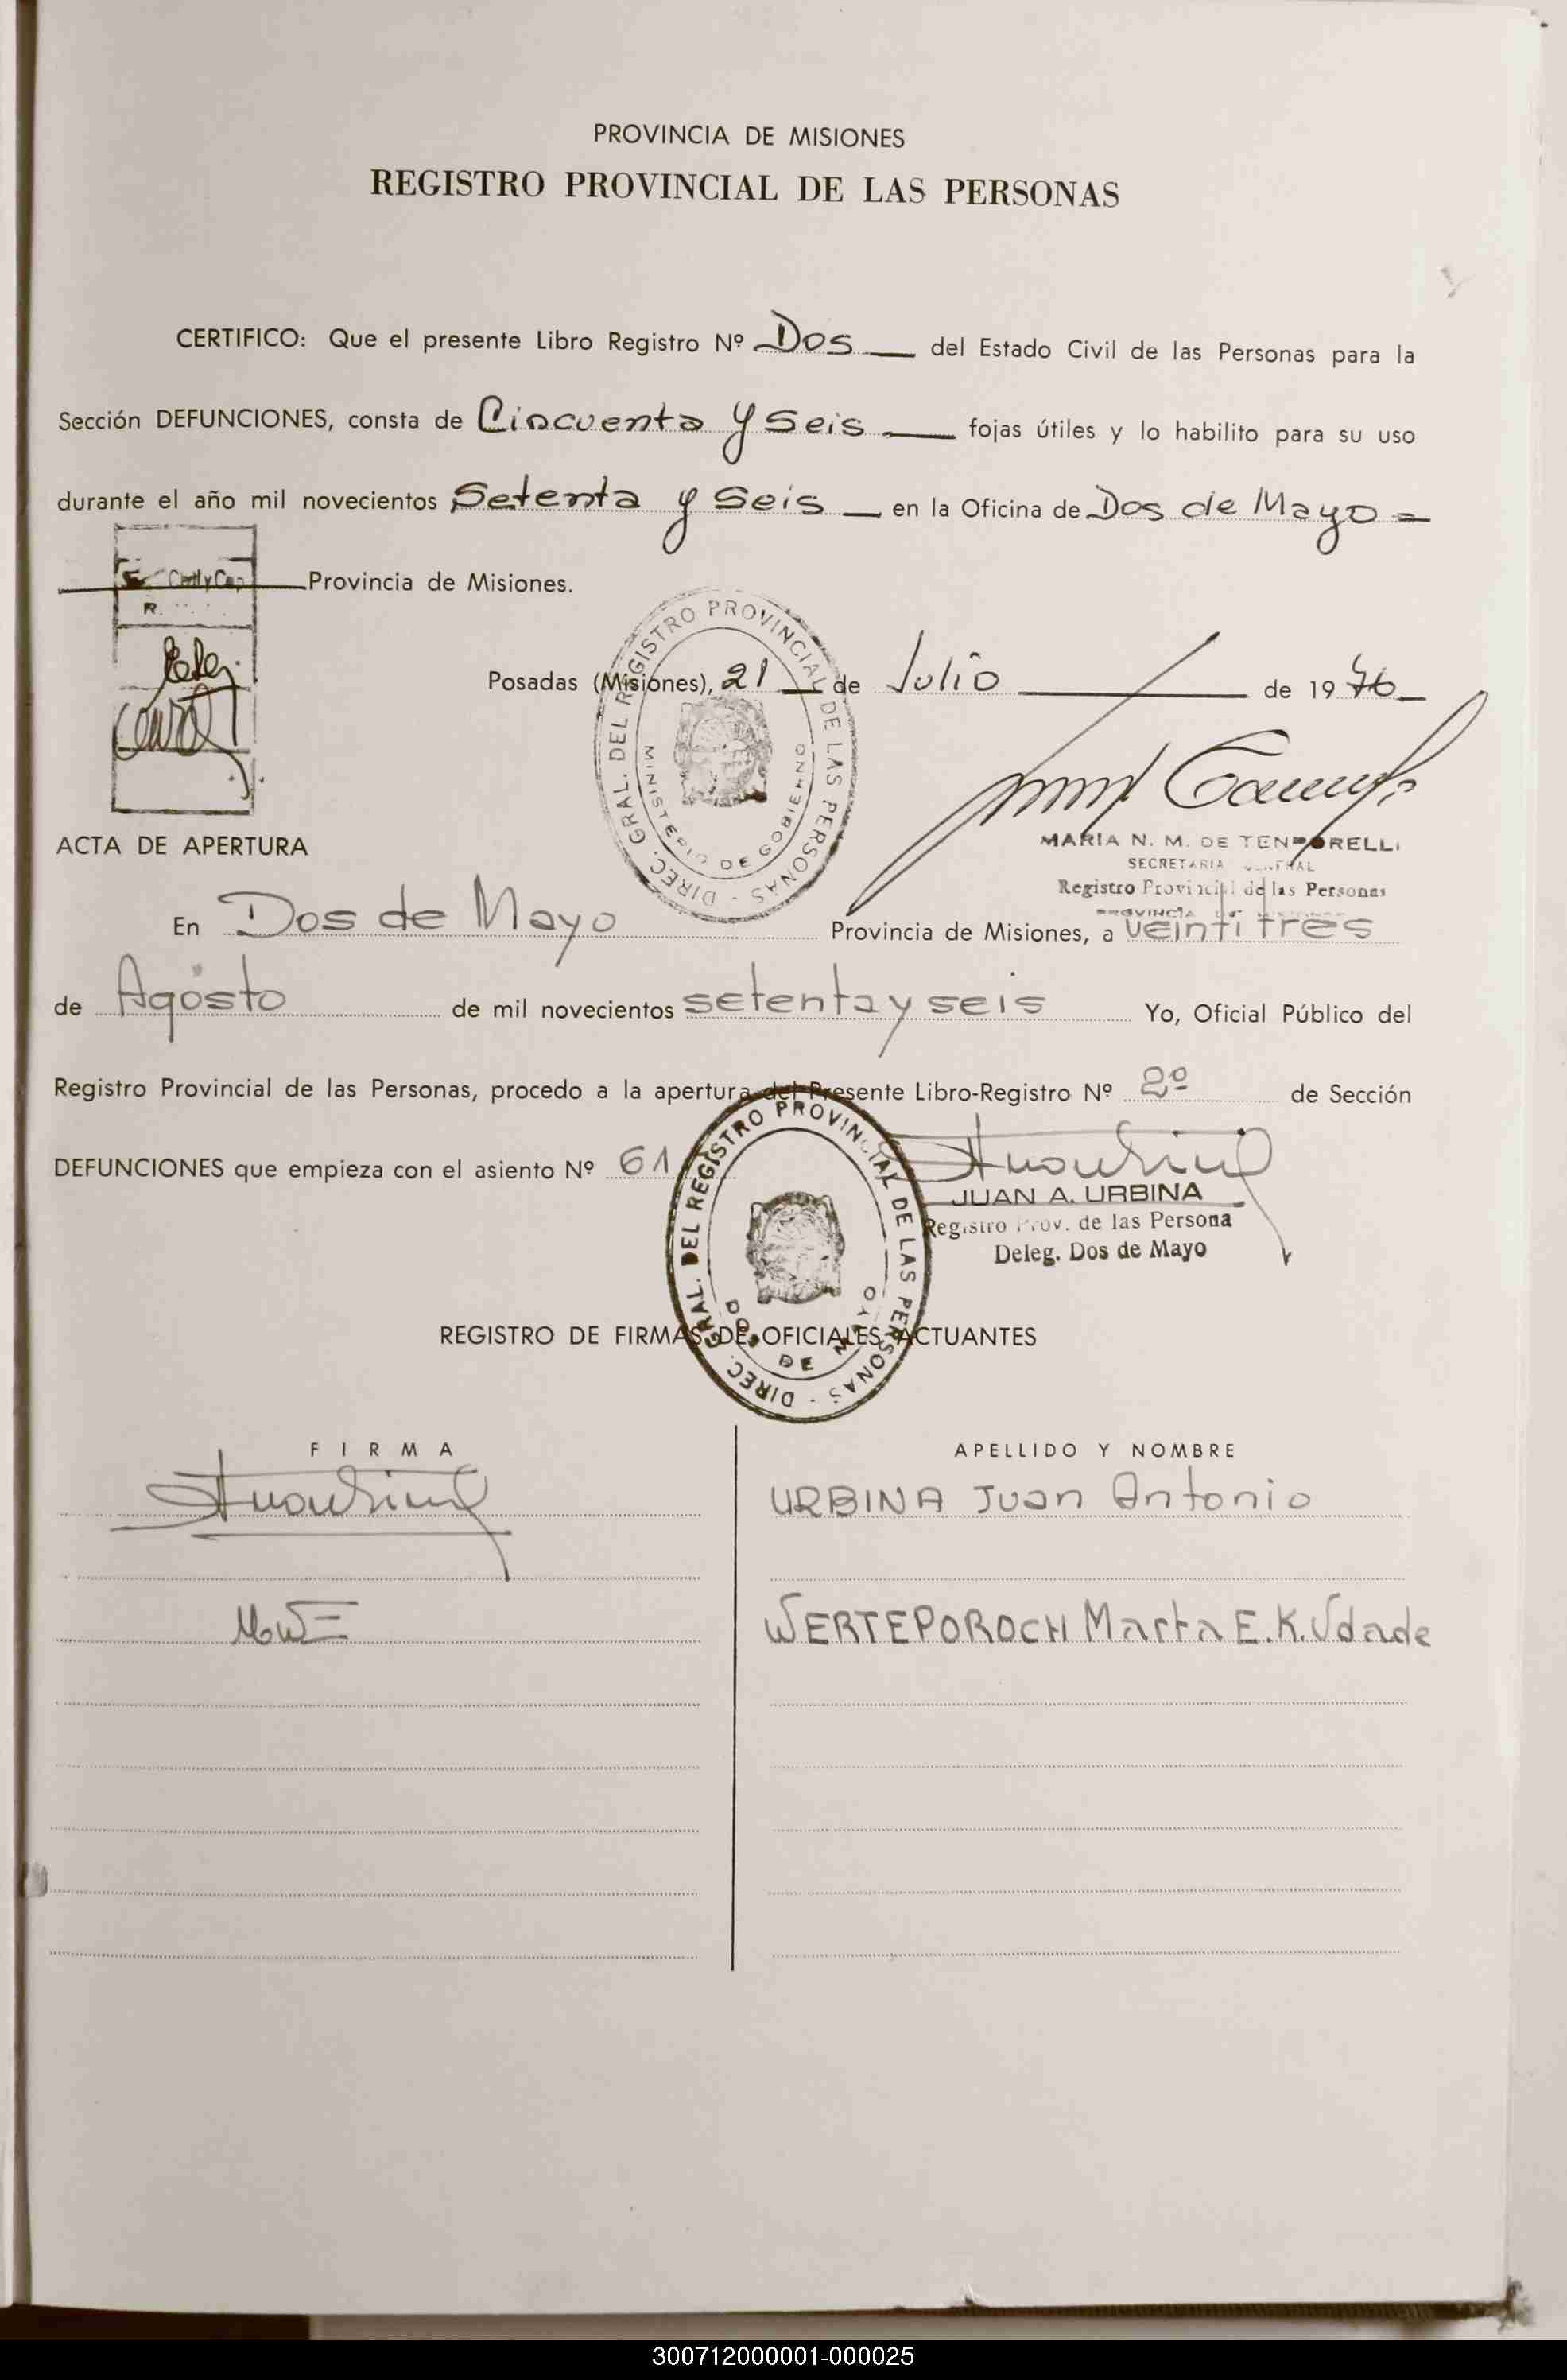 PROVINCIA DE MISIONES
REGISTRO PROVINCIAL DE LAS PERSONAS
CERTIFICO: Que el presente Libro Registro Nº Dos — del Estado Civil de las Personas para la
Sección DEFUNCIONES, consta de Cincuenta y Seis — fojas útiles y lo habilito para su uso
durante el año mil novecientos Setenta y Seis — en la Oficina de Dos de Mayo =
Provincia de Misiones.
Posadas (Misiones), 21 — de Julio — de 1976 —
DIREC. GRAL. DEL REGISTRO PROVINCIAL DE LAS PERSONAS -
MINISTERIO DE GOBIERNO
MARIA N. M. DE
SECRETARIA
Registro Provincial de las Personas
PROVINCIA
ACTA DE APERTURA
En Dos de Mayo Provincia de Misiones, a veintitres
de Agosto de mil novecientos setenta y seis Yo, Oficial Público del
Registro Provincial de las Personas, procedo a la apertura del Presente Libro-Registro Nº 2º de Sección
DEFUNCIONES que empieza con el asiento Nº 61
JUAN A. URBINA
Registro Prov. de las Persona
Deleg. Dos de Mayo
DIREC. GRAL. DEL REGISTRO PROVINCIAL DE LAS PERSONAS -
DOS DE MAYO
REGISTRO DE FIRMAS DE OFICIALES ACTUANTES
FIRMA APELLIDO Y NOMBRE
URBINA Juan Antonio
WERTEPOROCH Marta E. K. Vda de
300712000001-000025